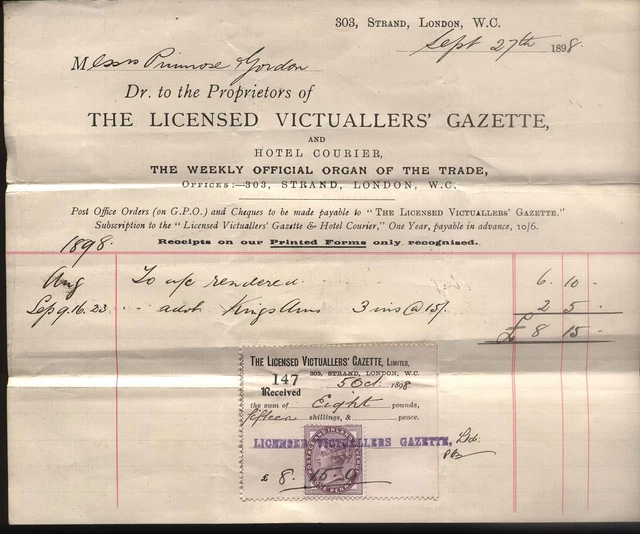 303, Strand, London, W.C.
Sept 27th 1898.
Messrs Primrose & Gordon
Dr. to the Proprietors of
THE LICENSED VICTUALLERS' GAZETTE,
AND
HOTEL COURIER,
THE WEEKLY OFFICIAL ORGAN OF THE TRADE,
Offices:—303, STRAND, LONDON, W.C.
Post Office Orders (on G.P.O.) and Cheques to be made payable to "The Licensed Victuallers' Gazette."
Subscription to the "Licensed Victuallers' Gazette & Hotel Courier," One Year, payable in advance, 10/6.
Receipts on our Printed Forms only recognised.
1898.
Aug To a/c rendered 6. 10 -
Sep 9.16.23 advt Kings Arms 3 ins @ 15/- 2 5 -
£ 8 15 -
The Licensed Victuallers' Gazette, Limited,
303, STRAND, LONDON, W.C.
147 5 Oct. 1898
Received
the sum of Eight pounds,
fifteen shillings, & pence.
LICENSED VICTUALLERS GAZETTE, Ltd.
£ 8. 15 - 0
POSTAGE AND INLAND REVENUE
ONE PENNY